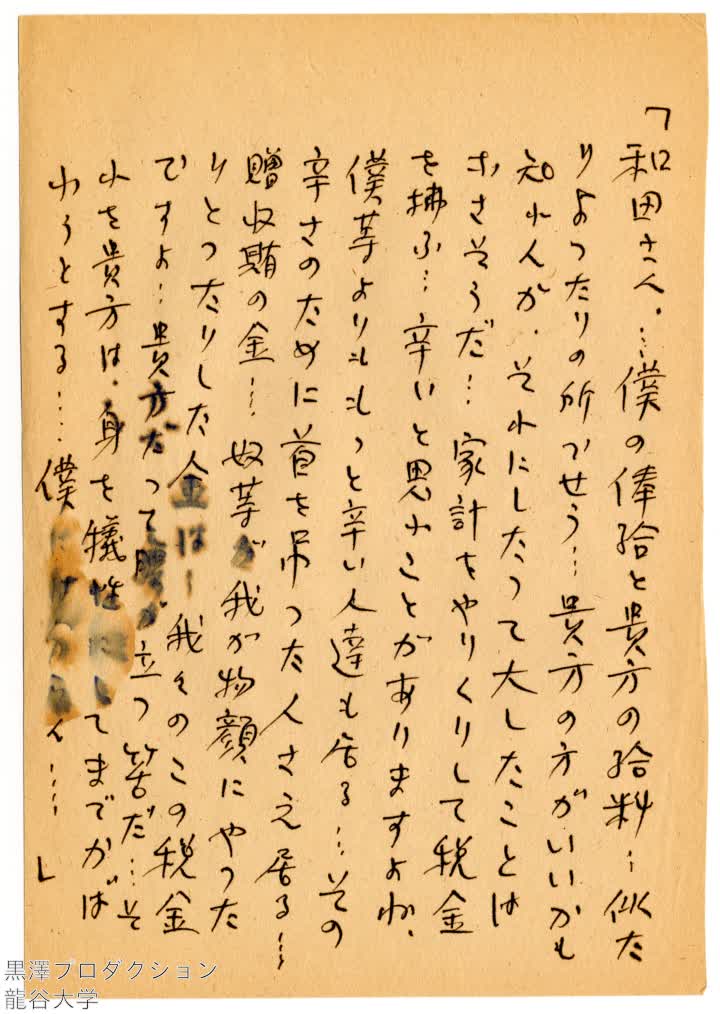 「和田さん。…僕の俸給と貴方の給料…似た
りよつたりの所でせう…貴方の方がいいかも
知れんが、それにしたつて大したことは
なさそうだ…家計をやりくりして税金
を拂ふ…辛いと思ふことがありますよね、
僕等よりももつと辛い人達も居る…その
辛さのために首を吊つた人さえ居る…
贈収賄の金…奴等が我が物顔にやつた
りとつたりした金は…我々のこの税金
ですよ…貴方だつて腹が立つ筈だ…そ
れを貴方は、身を犠牲にしてまでかば
わうとする…僕にはわからん…」
黒澤プロダクション
龍谷大学